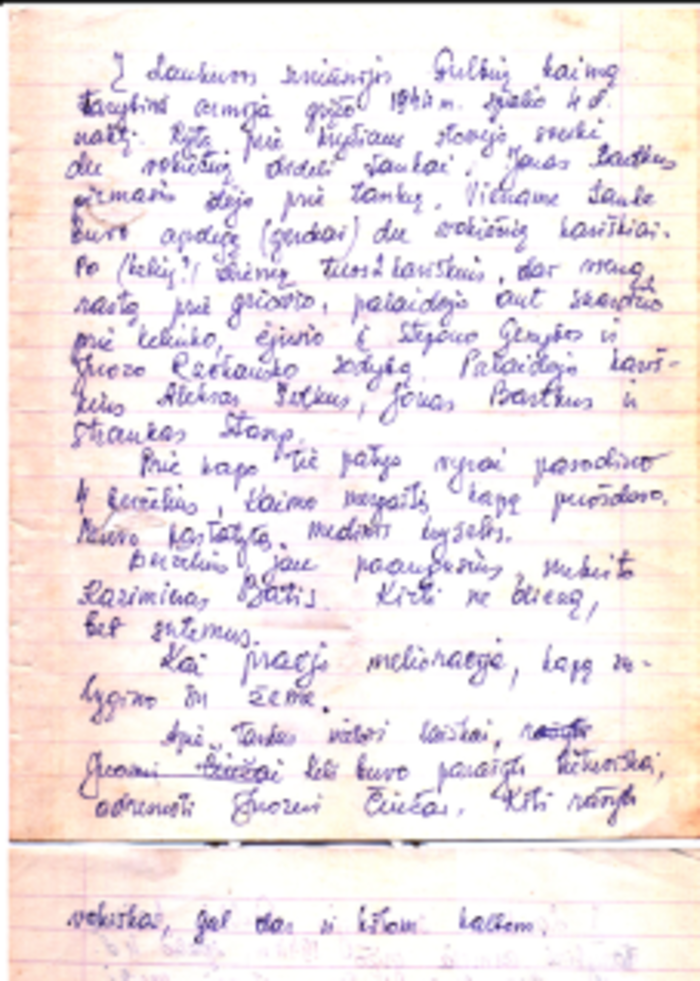 Į Laukuvos seniūnijos Gulbių kaimą
tarybinė armija grįžo 1944 m. spalio 4 d.
naktį. Rytą prie kryžiaus stovėjo sveiki
du vokiečių dideli tankai. Jonas Bartkus
pirmasis dėjo prie tankų. Viename tanke
buvo apdegę (gerokai) du vokiečių kariškiai.
Po (kelių?) dienų tuos 2 kariškius, dar vieną,
rastą prie griovio, palaidojo ant skardžio
prie keliuko, ėjusio į Stepono Genybos ir
Juozo Račkausko sodybą. Palaidojo kariš-
kius Aleksas Šetkus, Jonas Bartkus ir
Straukas Stasys.
Prie kapo tie patys vyrai pasodino
4 berželius, kaimo mergaitės kapą puošdavo.
Buvo pastatytas medinis kryželis.
Berželius jau paaugusius nukirto
Kazimieras Batis. Kirti ne dieną,
bet sutemus.
Kai praėjo melioracija, kapą su-
lygino su žeme.
Apie tankus mėtėsi laiškai,
Juozui keli buvo parašyti lietuviškai,
adresuoti Juozui Čiučai. Kiti rašyti
vokiškai, gal dar ir kitom kalbom.